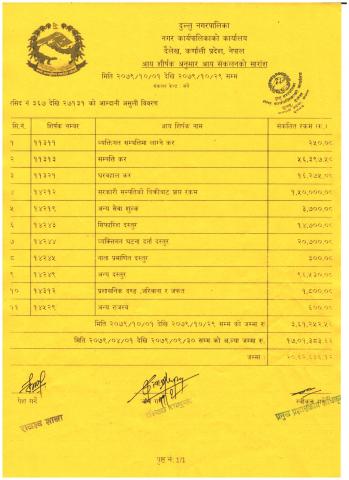 दुल्लु नगरपालिका
नगर कार्यपालिकाको कार्यालय
दैलेख, कर्णाली प्रदेश, नेपाल
आय शीर्षक अनुसार आय संकलनको सारांश
मिति २०७९/१०/०१ देखि २०७९/१०/२९ सम्म
रसिद नं ३६७ देखि २७१३१ को आम्दानी असुली विवरण
सि.नं. शीर्षक नम्बर आय शीर्षक नाम संकलित रकम (रू.)
१ ११३११ व्यक्तिगत सम्पत्तिमा लाग्ने कर २५०.०
२ ११३१३ सम्पत्ति कर ५६,३९७.५
३ ११३२१ घरवहाल कर १६,२७५.०
४ १४२१२ सरकारी सम्पत्तिको बिक्रीबाट प्राप्त रकम १,५०,०००.०
५ १४२१९ अन्य सेवा शुल्क ३,७००.०
६ १४२४३ सिफारिश दस्तुर १४,७००.०
७ १४२४४ व्यक्तिगत घटना दर्ता दस्तुर २०,७००.०
८ १४२४५ नाता प्रमाणित दस्तुर ३००.०
९ १४२४९ अन्य दस्तुर ९६,५३०.०
१० १४३१२ प्रशासनिक दण्ड, जरिवाना र जफत १,८००.०
११ १४५२९ अन्य राजस्व ६००.०
मिति २०७९/१०/०१ देखि २०७९/१०/२९ सम्म को जम्मा रु. ३,६१,२५२.५
मिति २०७९/०४/०१ देखि २०७९/०९/३० सम्म को अ.ल्या जम्मा रु. १७,०१,३८३.६
जम्मा : २०,६२,६३६.१
पेश गर्ने
राजस्व शाखा
पृष्ठ नं: 1/1